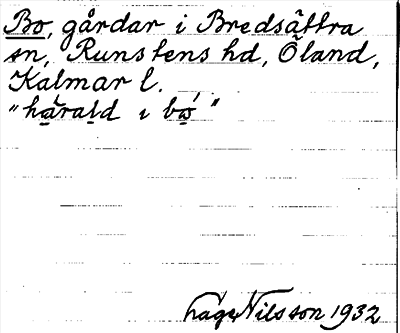 Bo, gårdar i Bredsättra
sn, Runstens hd, Öland,
Kalmar l.
"hărald ı bó"
Nilsson 1932